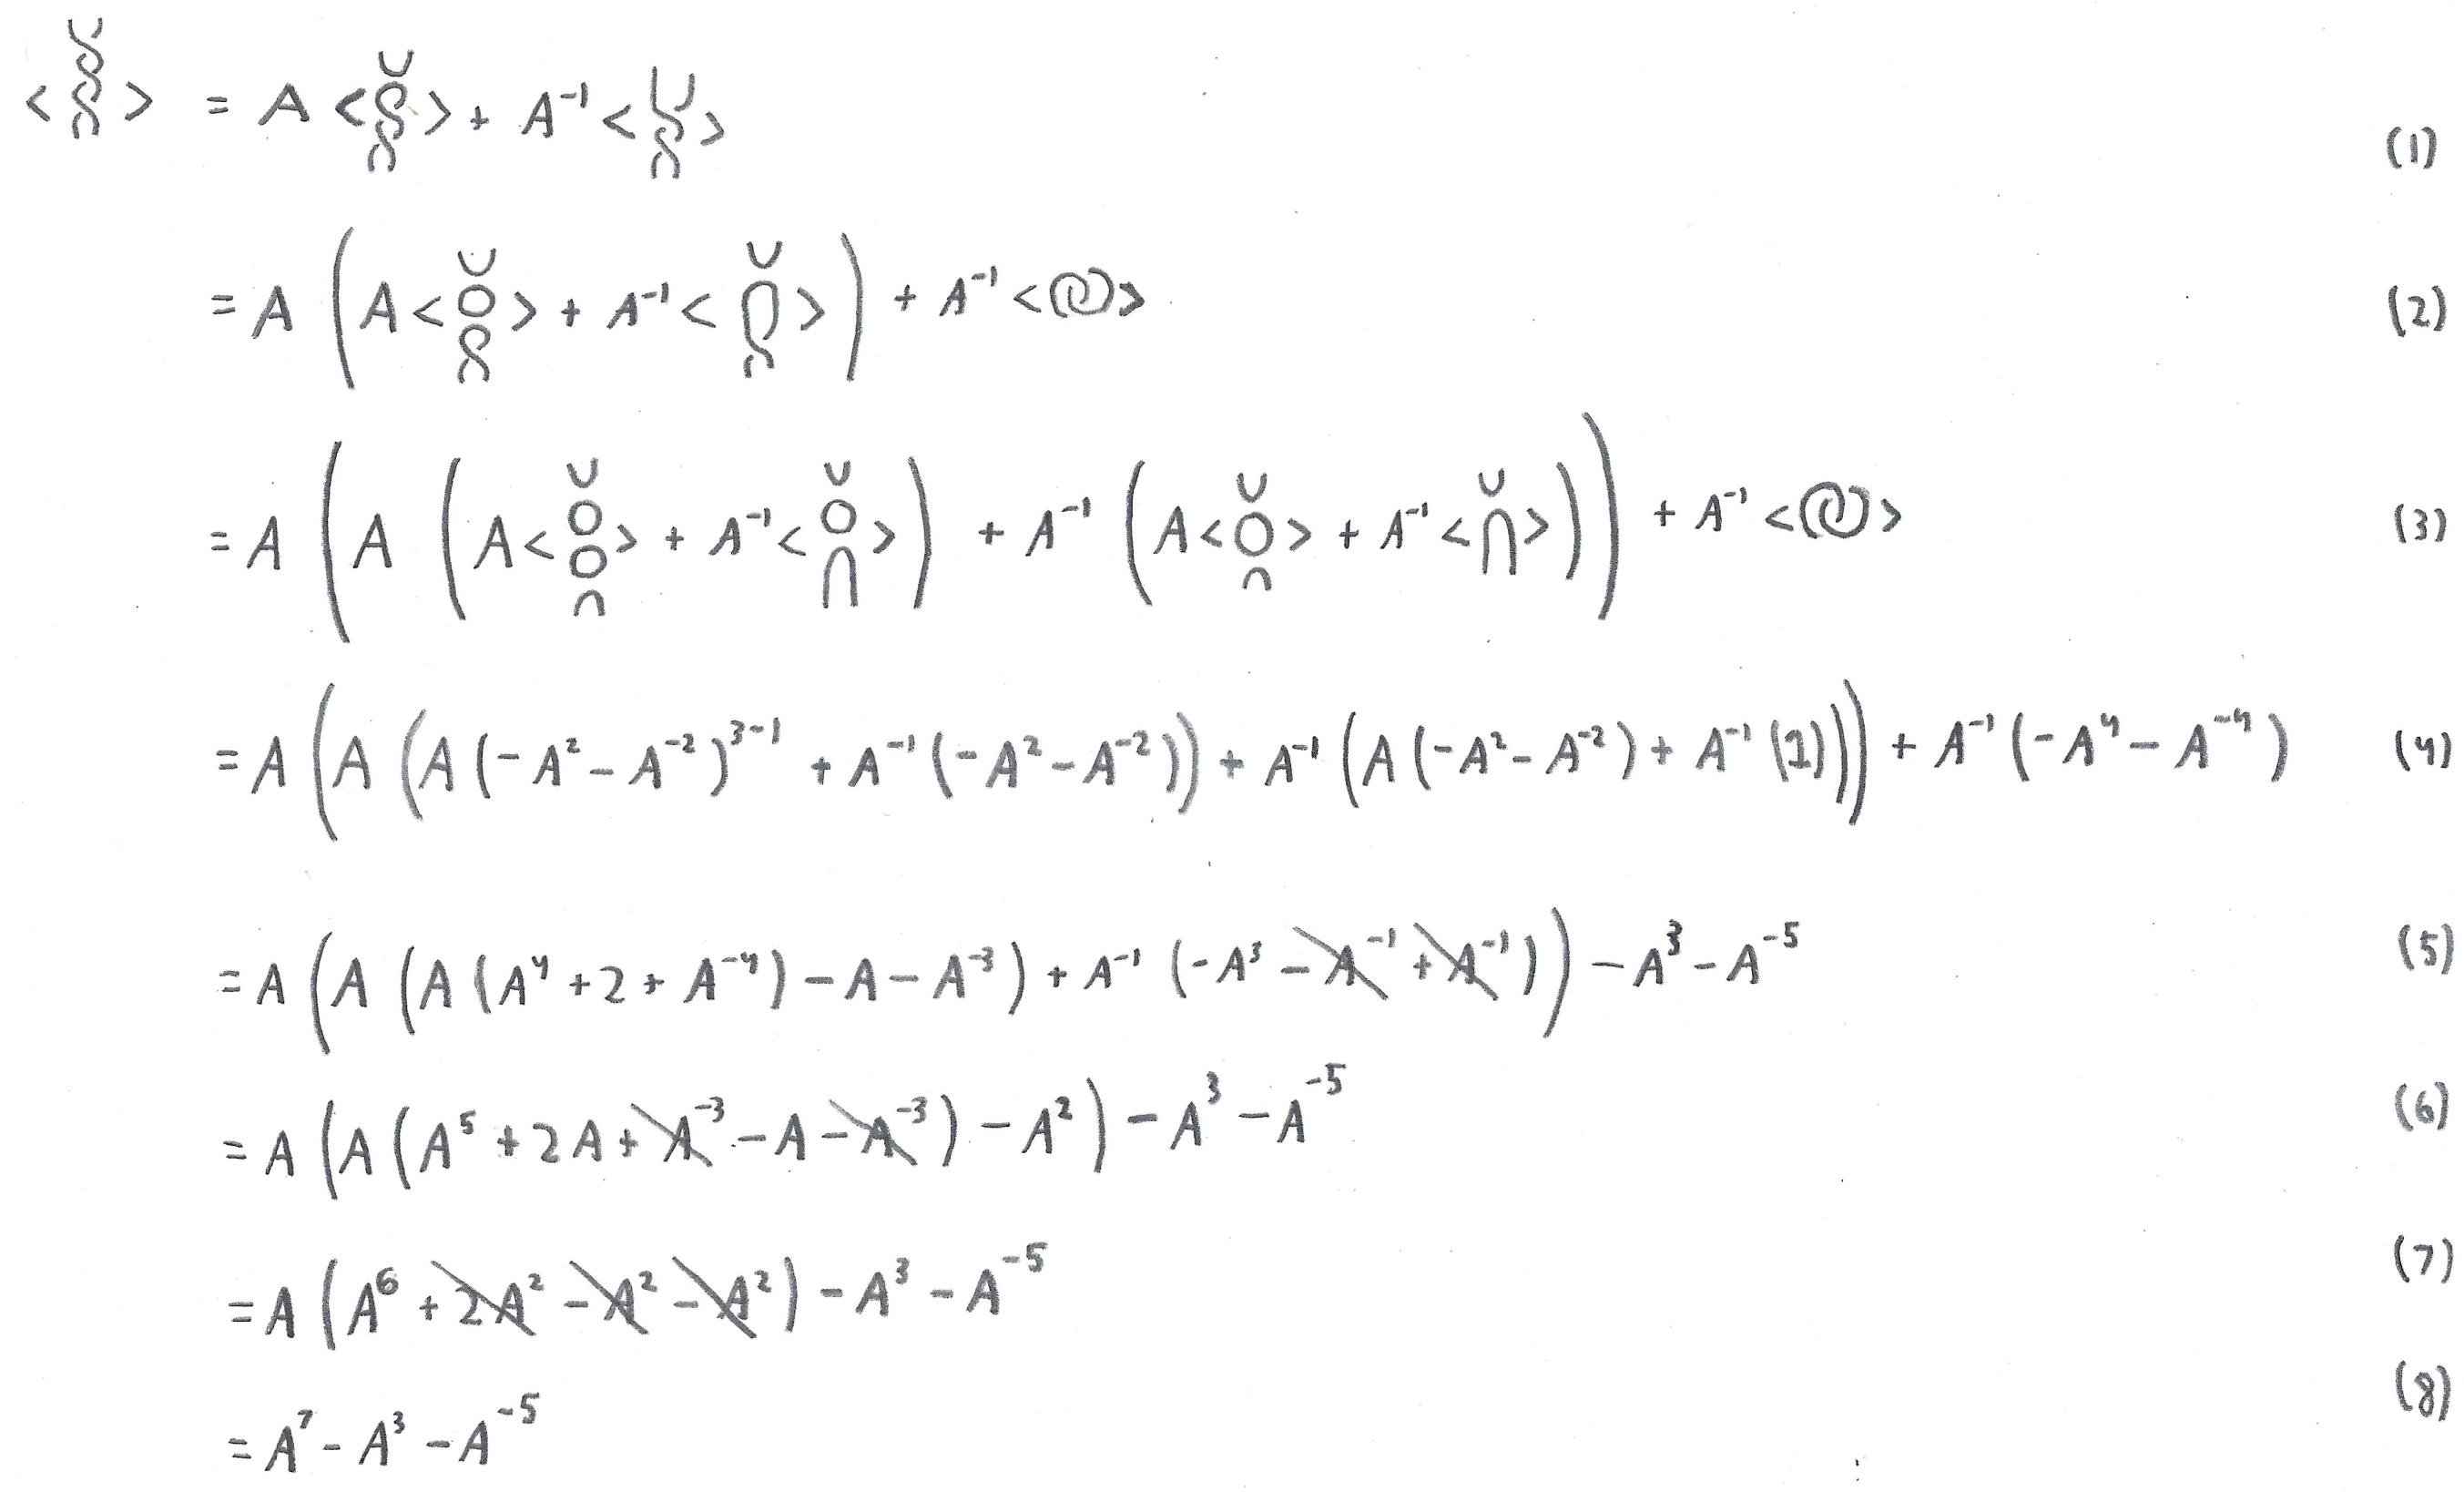 < > = A < > + A⁻¹ < > (1)
= A ( A < > + A⁻¹ < > ) + A⁻¹ < > (2)
= A ( A ( A < > + A⁻¹ < > ) + A⁻¹ ( A < > + A⁻¹ < > ) ) + A⁻¹ < > (3)
= A ( A ( A (-A² - A⁻²)³⁻¹ + A⁻¹ (-A² - A⁻²) ) + A⁻¹ ( A (-A² - A⁻²) + A⁻¹ (1) ) ) + A⁻¹ (-A⁴ - A⁻⁴) (4)
= A ( A ( A (A⁴ + 2 + A⁻⁴) - A - A⁻³ ) + A⁻¹ (-A³ - A⁻¹ + A⁻¹) ) - A³ - A⁻⁵ (5)
= A ( A ( A⁵ + 2A + A⁻³ - A - A⁻³ ) - A² ) - A³ - A⁻⁵ (6)
= A ( A⁶ + 2A² - A² - A² ) - A³ - A⁻⁵ (7)
= A⁷ - A³ - A⁻⁵ (8)